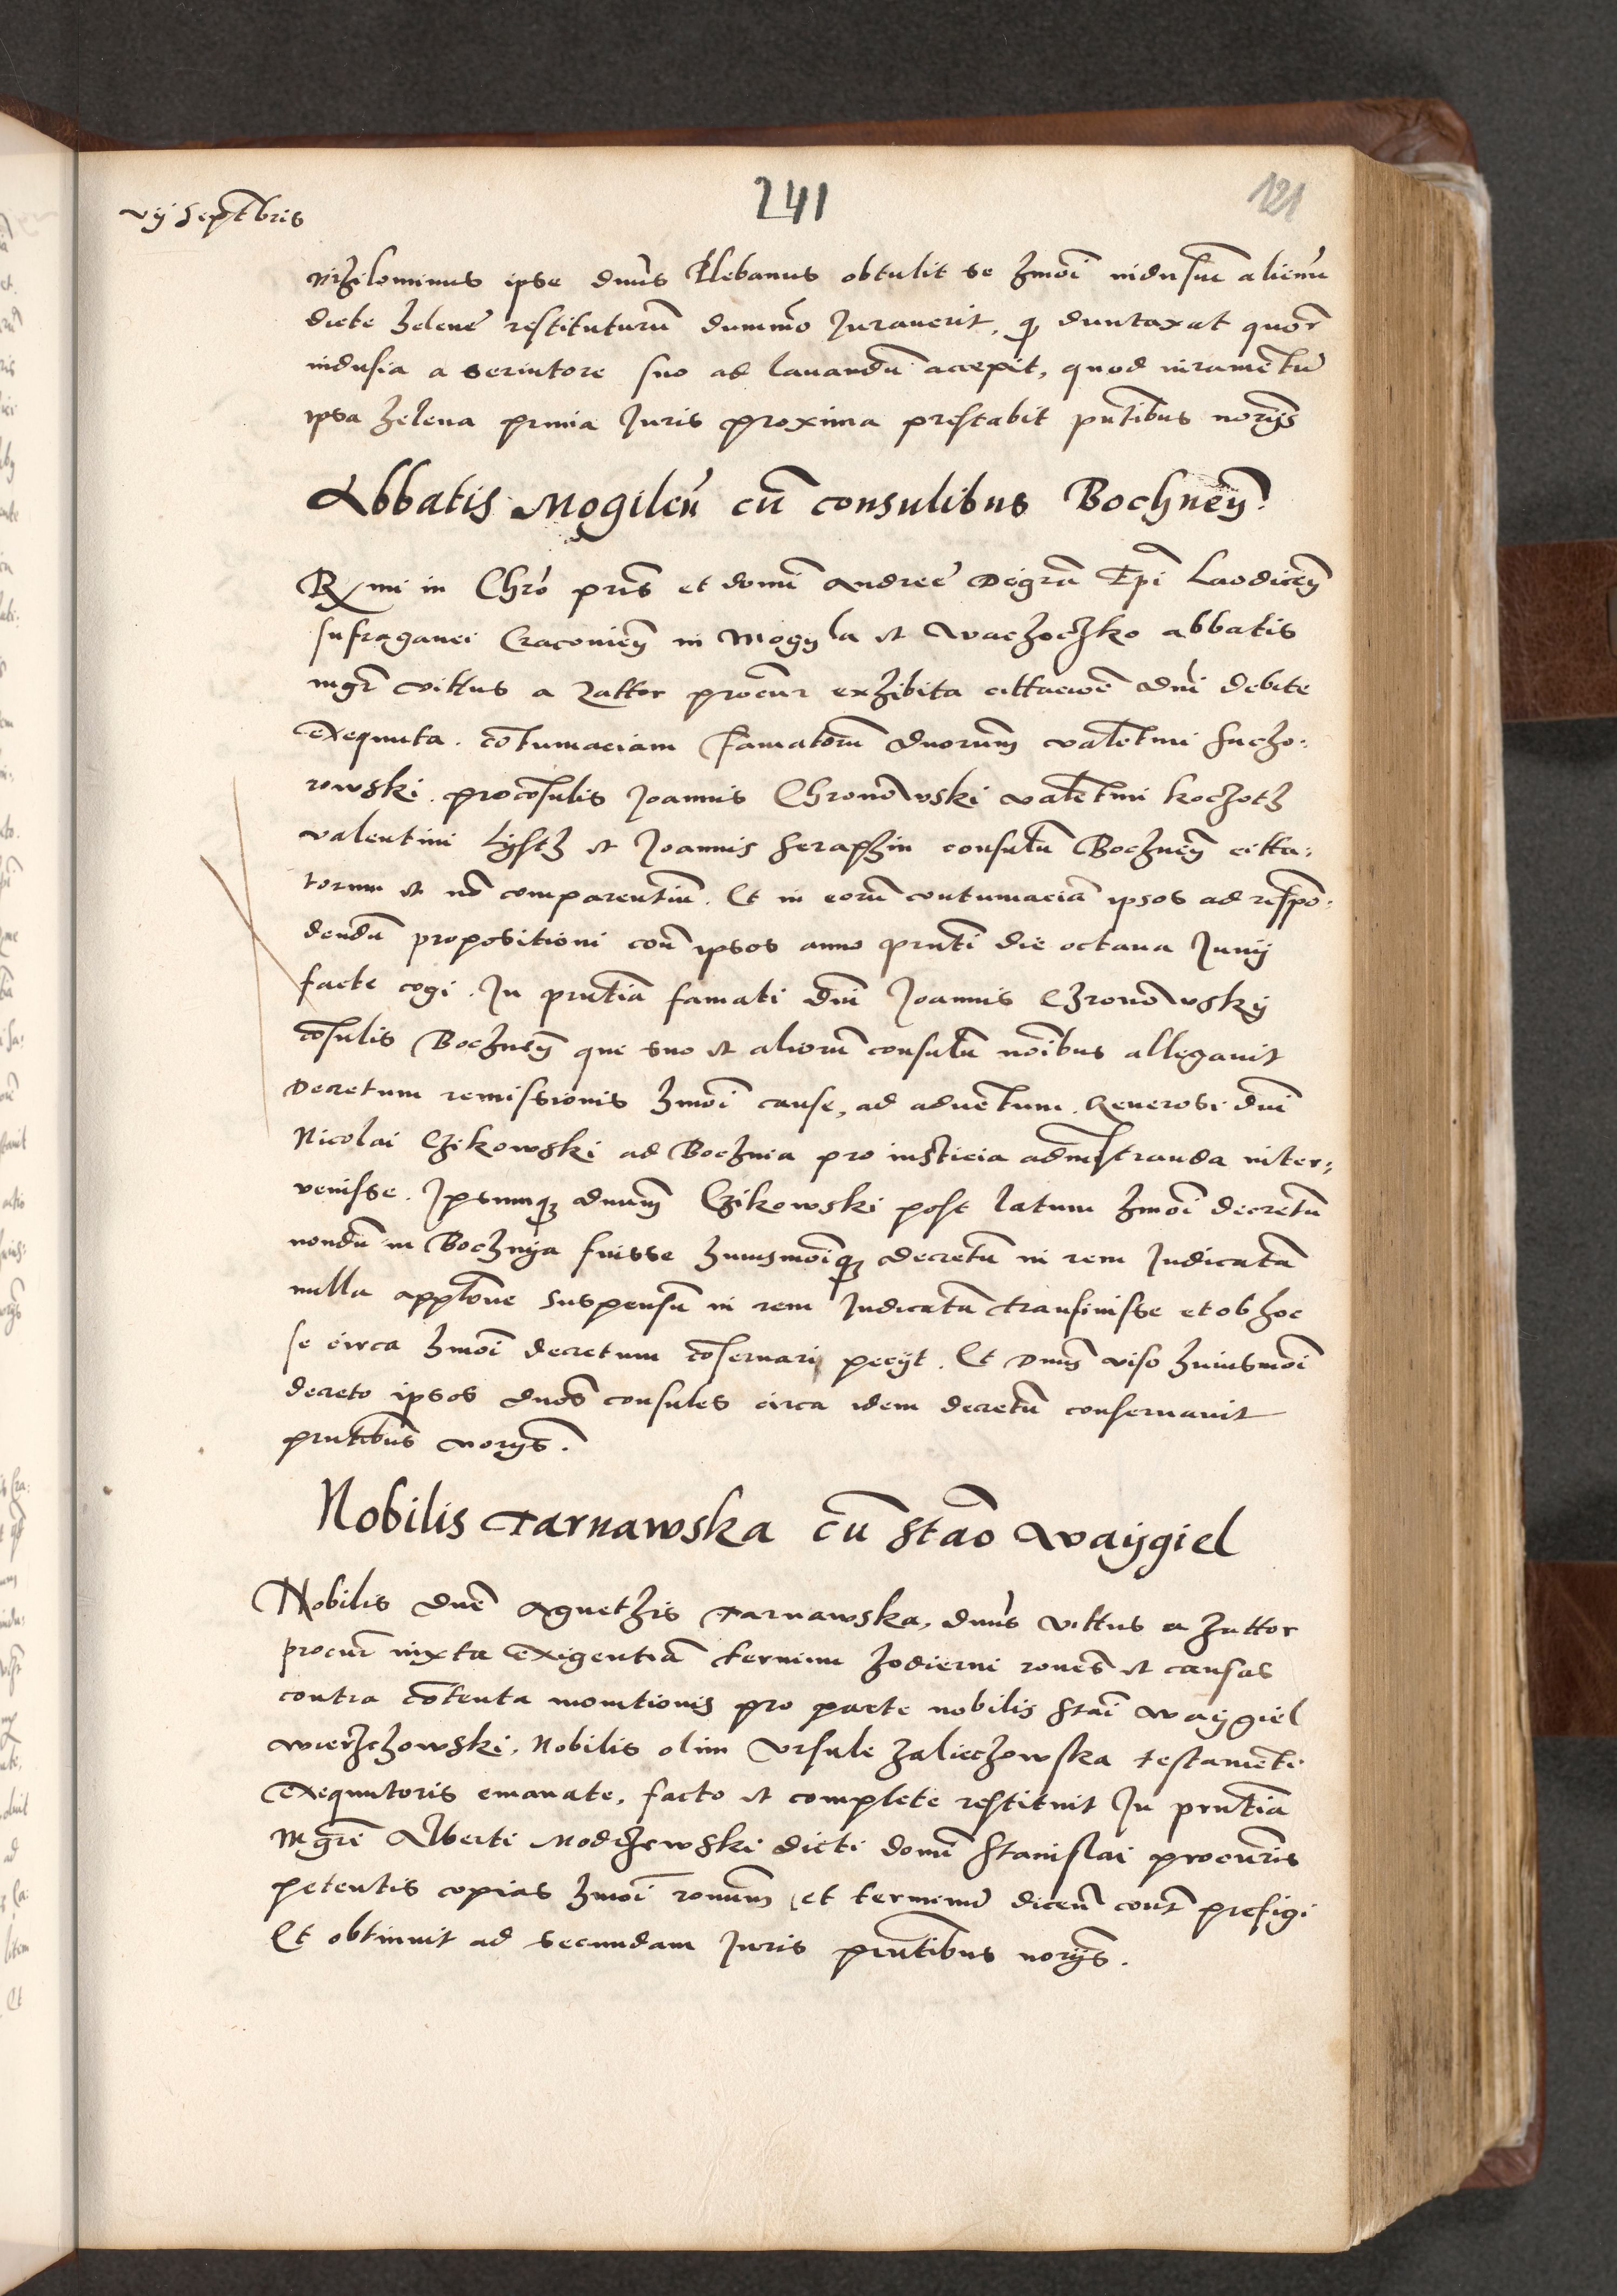 241
121
vij Septēbris
nihilominus ipse dnus Plebanus obtulit se hmoi indusiū alienū
dicte helene restituturū dummō Juraverit, q̄ duntaxat quor
indusia a servitore suo ad lavandū accepit, quod iuramētū
ipsa helena prima Juris proxima prestabit pntibus norijs
Abbatis Mogilēn cū consulibus Bochneñ
Rmi in Chro pris et domī Andree Deigrā Epi Laodiceñ
sufraganei Cracovieñ in Mogyla et Wachoczko abbatis
mgr Vittus a Zattor procur exhibita cittacioē dni debite
exequuta. cōtumaciam famatorū dnorum valētini Sucho:
rowski. procōsulis Joannis Chronowski valētini kochoth
valentini Lysth et Joannis Seraphin consulū Bochneñ citta:
torum et nō comparentiū. Et in eorū contumaciā ipsos ad respō:
dendū propositioni cont ipsos anno pnti die octava Junij
facte cogi. In pntia famati dni Joannis Chronowskij
cōsulis Bochneñ qui suo et aliorū consulū noibus allegavit
Decretum remissionis hmoi cause, ad advētum. Generosi dni
Nicolai Czikowski ad Bochnia pro iusticia admīstranda inter:
venisse. Ipsumq; dnum Czikowski post latum hmoi decretū
nondū in Bochnija fuisse huiusmoiq; decretū in rem Judicatā
nulla applōne suspensū in rem Judicatā transivisse et ob hoc
se circa hmoi decretum cōservari pecijt. Et Dnus viso huiusmoi
decreto ipsos dnos consules circa idem decretū conservavit
pntibus norijs.
Nobilis Tarnawska cū Stāo Waijgiel
Nobilis dne Agnethis Tarnawska, dnus Vittus a Zattor
procur iuxta exigentiā termini hodierni rones et causas
contra cōtenta monitionis pro parte nobilis Stāi Waijgiel
Wierzchowski. Nobilis olim Ursule Zaliechowska testamēti
exequutoris emanate, facto et complete restituit In pntia
Mgri Alberti Modrzewski dicti domī Stanislai procuris
petentis copias hmoi ronum et terminū dicenᵈ cont prefigi
Et obtinuit ad secundam Juris pntibus norijs.